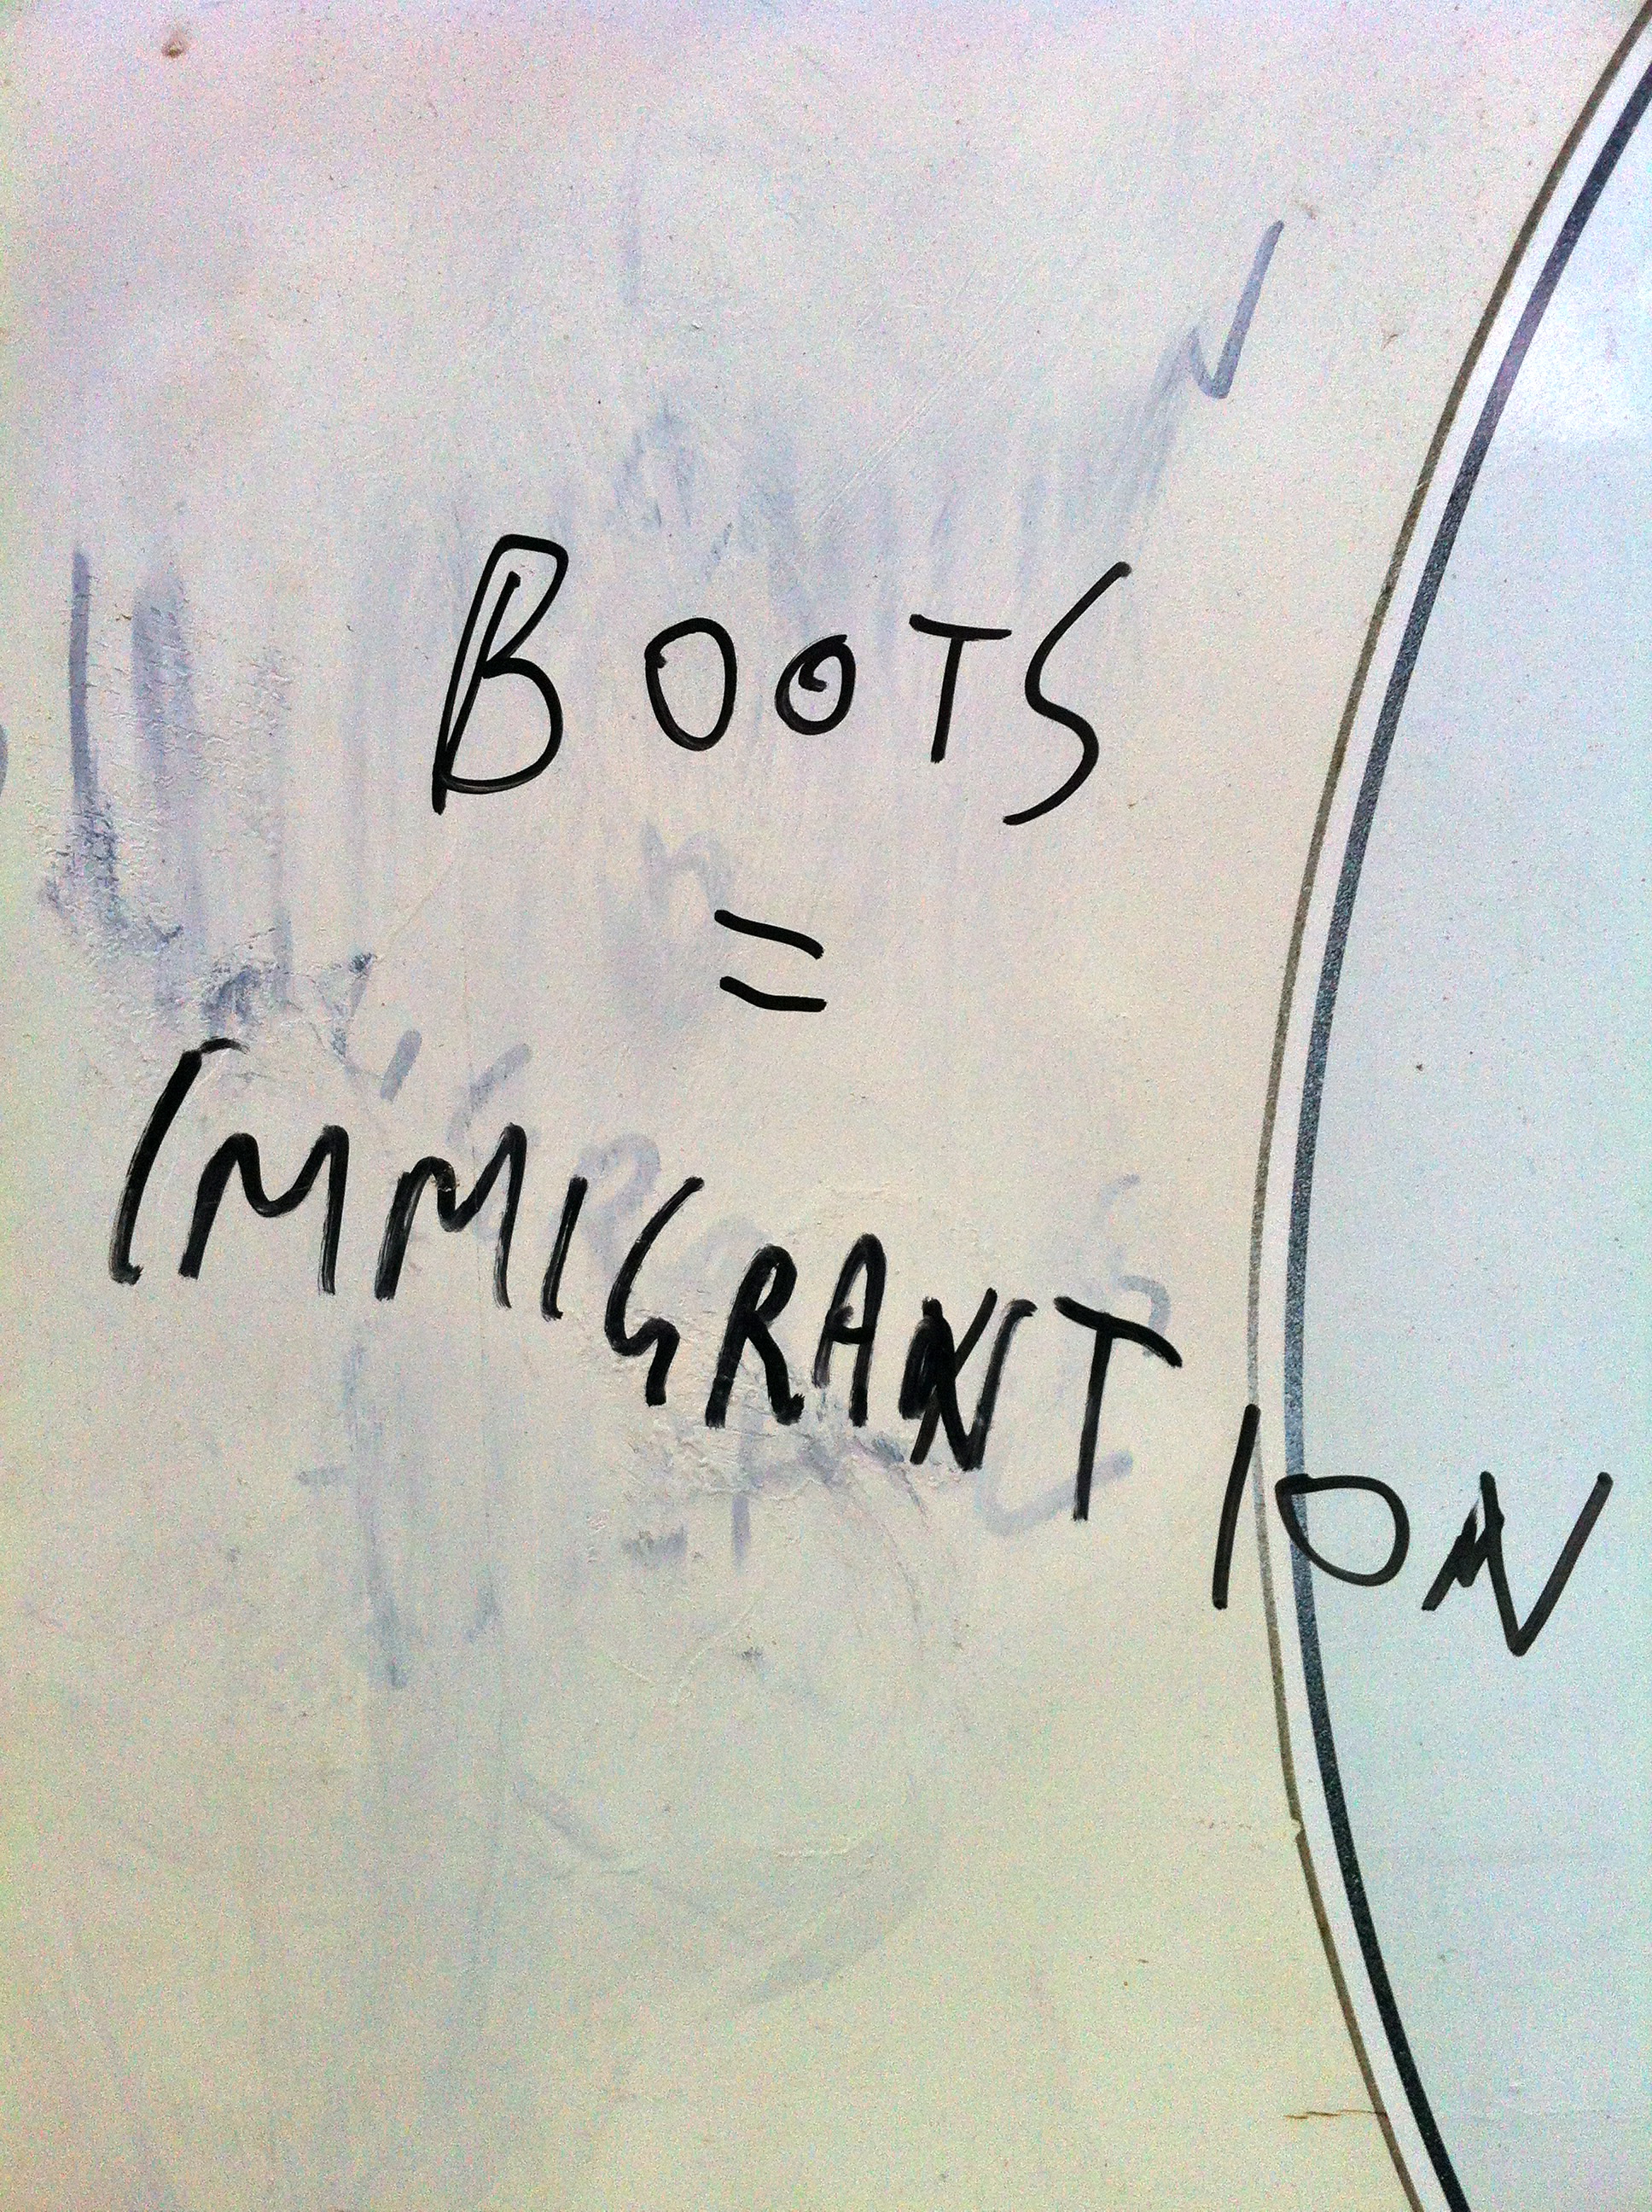 BOOTS
=
IMMIGRANTION